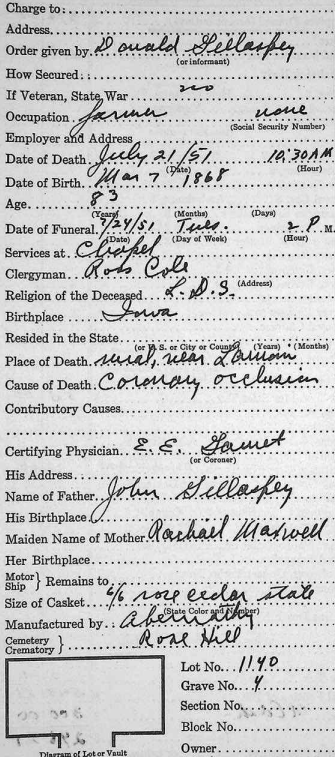 Charge to:
Address
Order given by Donald Gillaspey
(or informant)
How Secured:
If Veteran, State War no
Occupation farmer none
(Social Security Number)
Employer and Address
Date of Death July 21/51 10:30 AM
(Date) (Hour)
Date of Birth Mar 7 1868
Age 83
(Years) (Months) (Days)
Date of Funeral 7/24/51 Tues. 2 P M.
(Date) (Day of Week) (Hour)
Services at Chapel
Clergyman Ross Cole
Religion of the Deceased L.D.S.
(Address)
Birthplace Iowa
Resided in the State
(or U. S. or City or County) (Years) (Months)
Place of Death rural, near Lamoni
Cause of Death Coronary occlusion
Contributory Causes
Certifying Physician E. E.
(or Coroner)
His Address
Name of Father John Gillaspey
His Birthplace
Maiden Name of Mother Rachail Maxwell
Her Birthplace
Motor Ship } Remains to
Size of Casket 6/6 rose cedar state
(State Color and Number)
Manufactured by Abernathy
Cemetery Crematory } Rose Hill
Lot No. 1140
Grave No. 4
Section No.
Block No.
Owner
Diagram of Lot or Vault